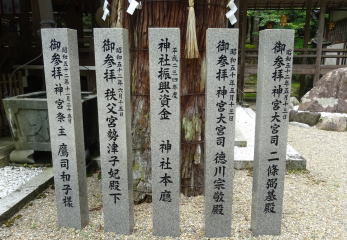 昭和五十二年十二月十三日
御参拝 神宮祭主 鷹司和子様
昭和五十二年六月十五日
御参拝 秩父宮勢津子妃殿下
平成二三四年度
神社振興資金 神社本廳
昭和五十年五月十三日
御参拝 神宮大宮司 徳川宗敬殿
御参拝 神宮大宮司 二條弼基殿